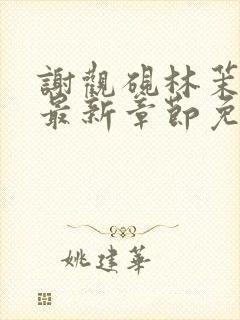 謝觀硯林茉
最新章節免
姚建華